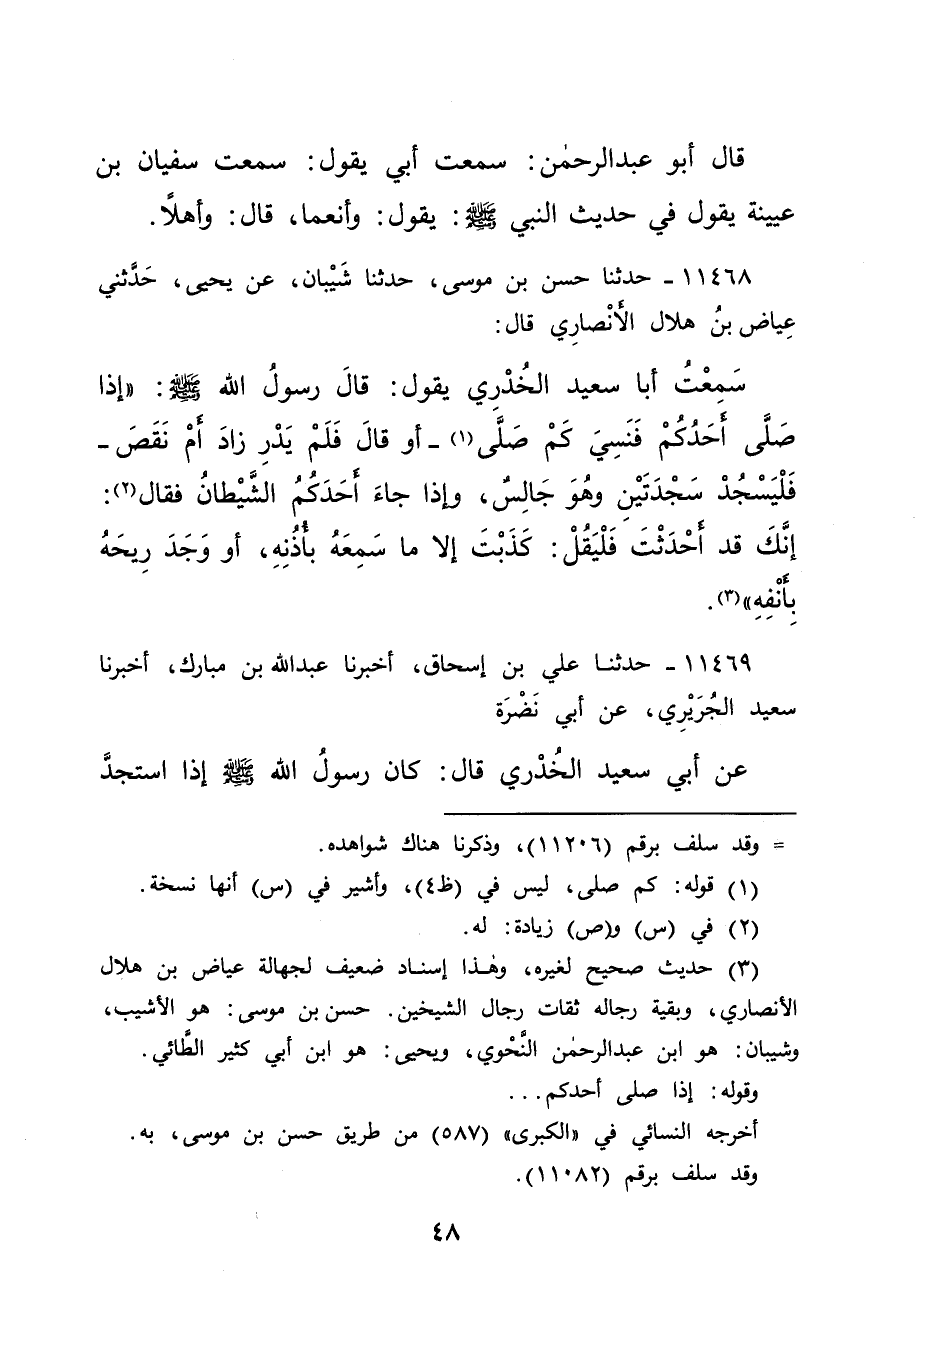 قال أبو عبدالرحمٰن: سمعت أبي يقول: سمعت سفيان بن
عيينة يقول في حديث النبي ﷺ: يقول: وأنعما، قال: وأهلًا.
١١٤٦٨ - حدثنا حسن بن موسى، حدثنا شَيْبان، عن يحيى، حَدَّثني
عِياض بنُ هلال الأَنْصارِي قال:
سَمِعْتُ أبا سعيد الخُدْرِي يقول: قالَ رسولُ الله ﷺ: «إذا
صَلَّى أَحَدُكُمْ فَنَسِيَ كَمْ صَلَّى(١) - أو قالَ فَلَمْ يَدْرِ زادَ أَمْ نَقَصَ -
فَلْيَسْجُدْ سَجْدَتَيْنِ وهُوَ جَالِسٌ، وإذا جاءَ أَحَدَكُمُ الشَّيْطانُ فقال(٢):
إنَّكَ قد أَحْدَثْتَ فَلْيَقُلْ: كَذَبْتَ إلا ما سَمِعَهُ بأُذُنِهِ، أو وَجَدَ رِيحَهُ
بِأَنْفِهِ»(٣).
١١٤٦٩ - حدثنا علي بن إسحاق، أخبرنا عبدالله بن مبارك، أخبرنا
سعيد الجُرَيْرِي، عن أبي نَضْرَة
عن أبي سعيد الخُدْري قال: كان رسولُ الله ﷺ إذا استجدَّ
= وقد سلف برقم (١١٢٠٦)، وذكرنا هناك شواهده.
(١) قوله: كم صلى، ليس في (ظ٤)، وأشير في (س) أنها نسخة.
(٢) في (س) و(ص) زيادة: له.
(٣) حديث صحيح لغيره، وهٰذا إسناد ضعيف لجهالة عياض بن هلال
الأنصاري، وبقية رجاله ثقات رجال الشيخين. حسن بن موسى: هو الأشيب،
وشيبان: هو ابن عبدالرحمٰن النَّحْوي، ويحيى: هو ابن أبي كثير الطَّائي.
وقوله: إذا صلى أحدكم...
أخرجه النسائي في «الكبرى» (٥٨٧) من طريق حسن بن موسى، به.
وقد سلف برقم (١١٠٨٢).
٤٨